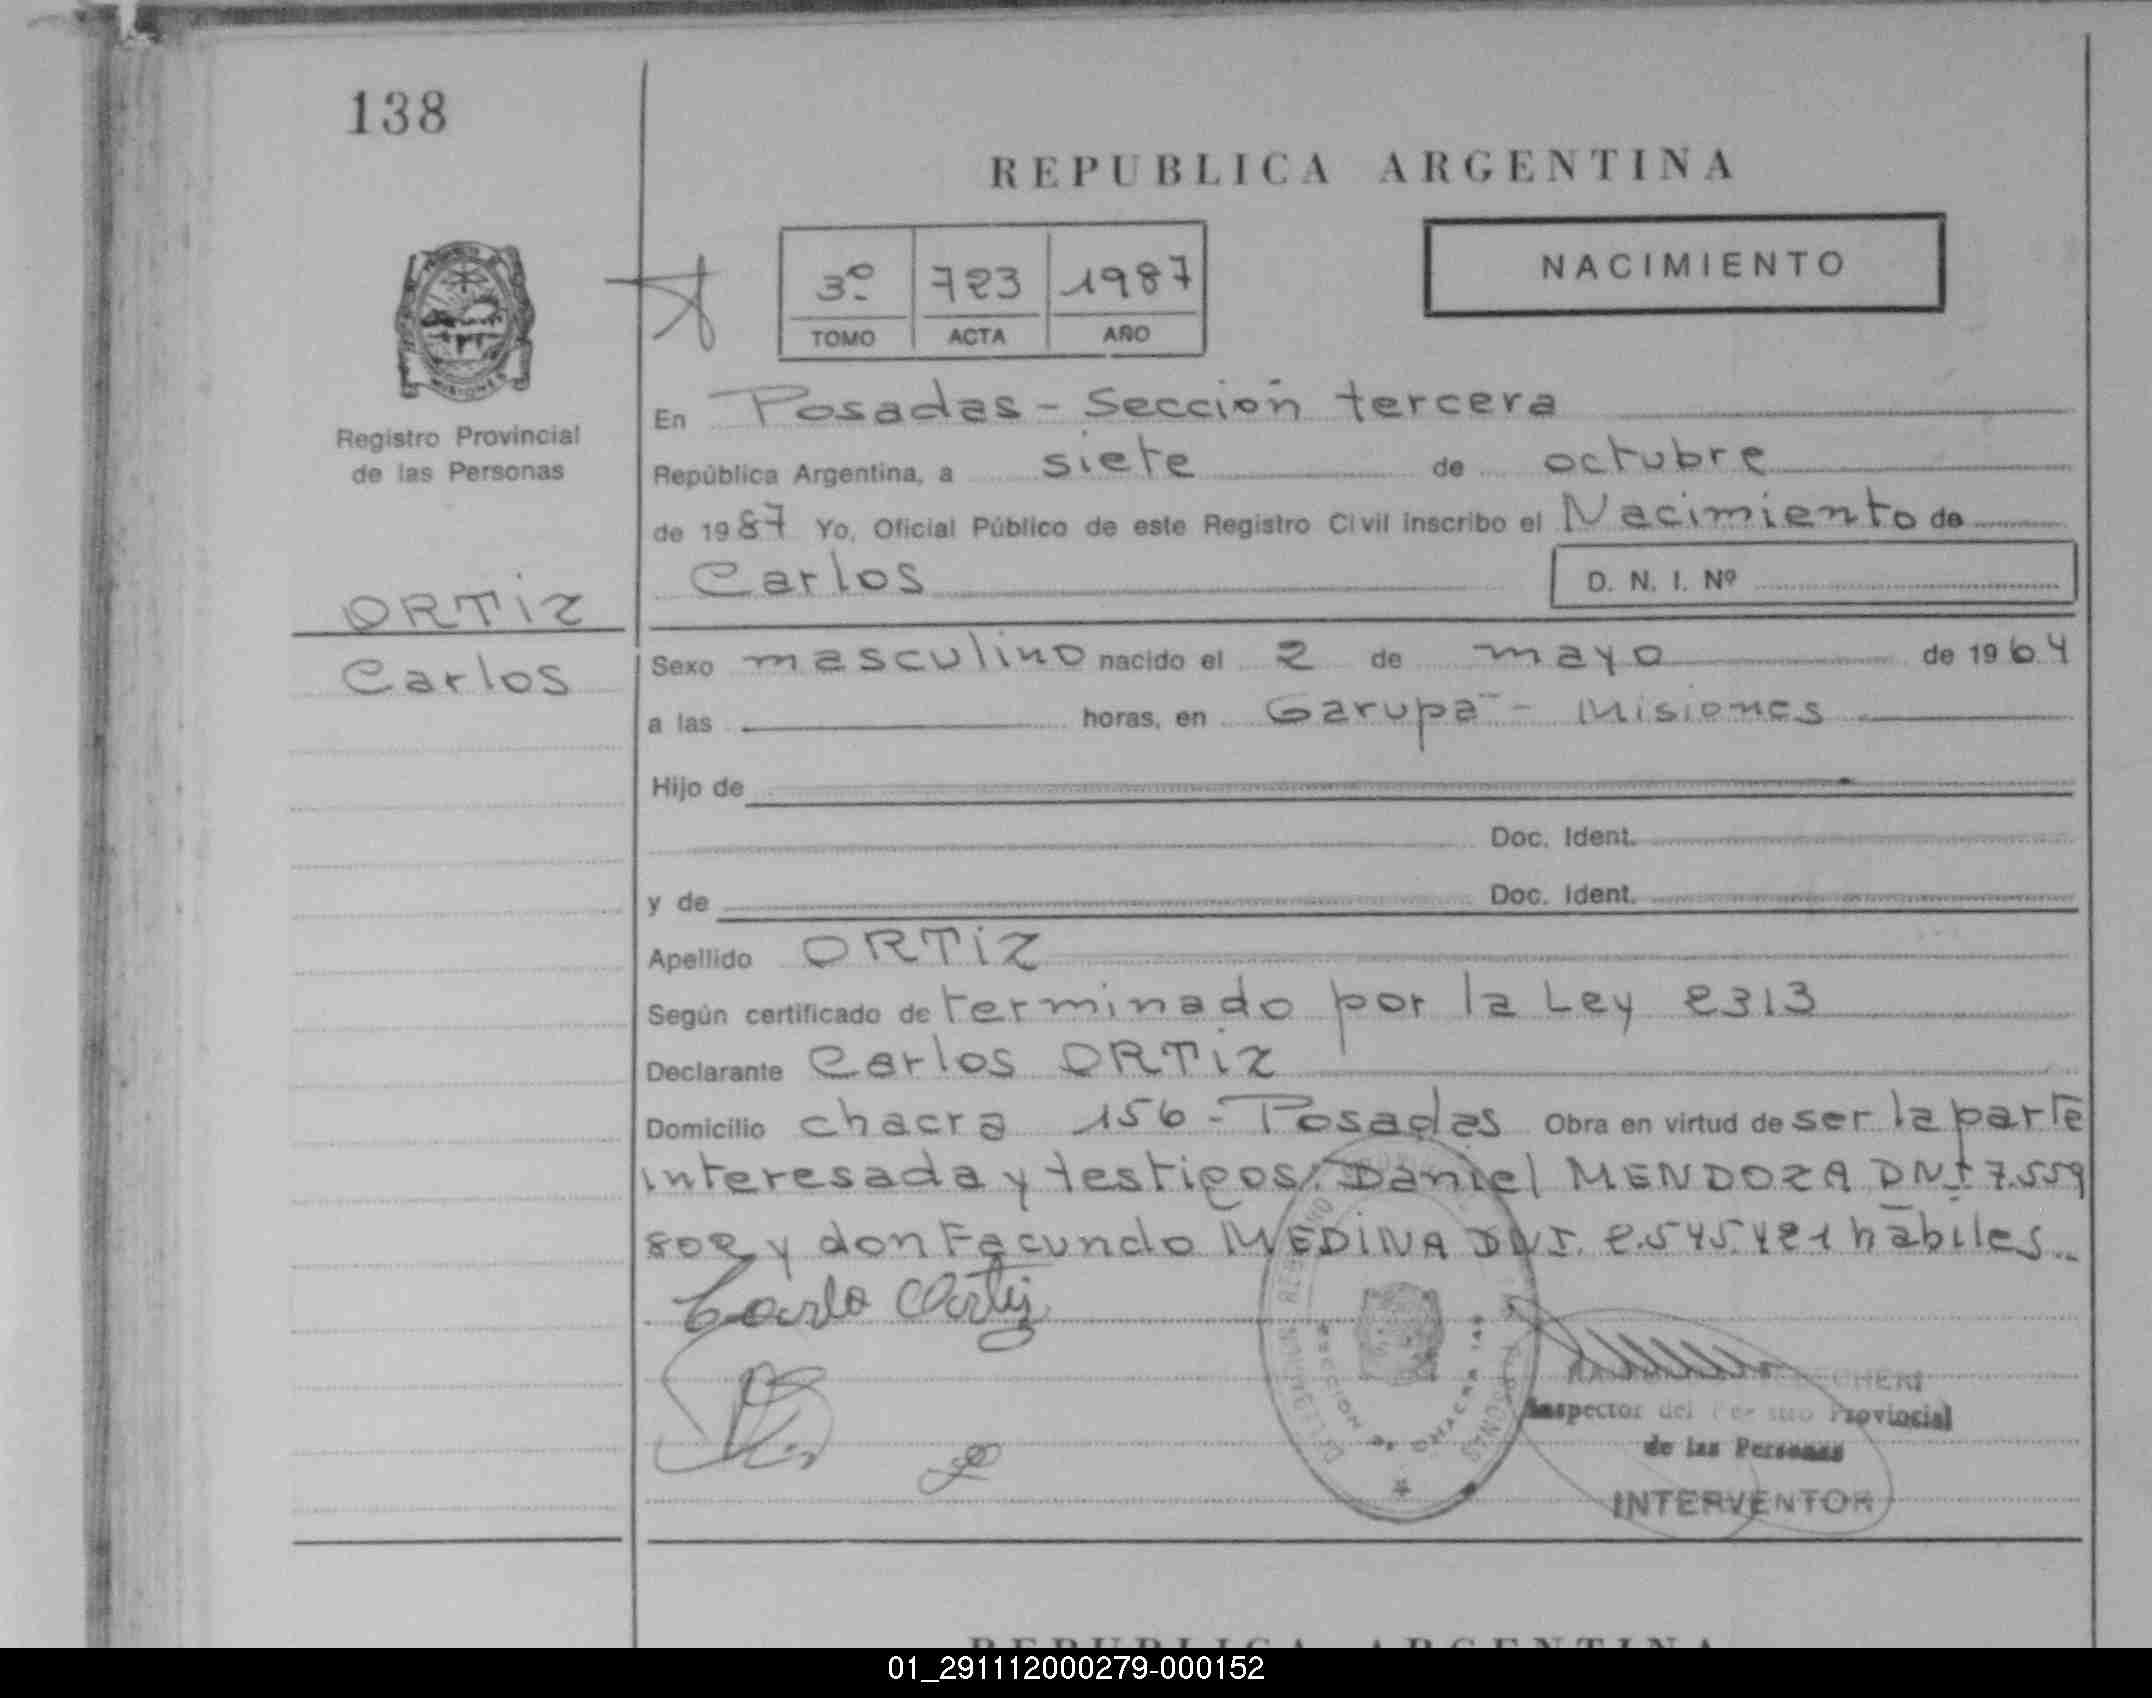 138
REPUBLICA ARGENTINA
3º 723 1987
TOMO ACTA AÑO
NACIMIENTO
MISIONES
Registro Provincial
de las Personas
En Posadas - Sección tercera
República Argentina, a siete de octubre
de 1987 Yo, Oficial Público de este Registro Civil inscribo el Nacimiento de
Carlos
D. N. I. Nº
ORTIZ
Carlos
Sexo masculino nacido el 2 de mayo de 1964
a las horas, en Garupá - Misiones
Hijo de
Doc. Ident.
y de Doc. Ident.
Apellido ORTIZ
Según certificado de terminado por la Ley 2313
Declarante Carlos ORTIZ
Domicilio chacra 156 - Posadas Obra en virtud de ser la parte
interesada y testigos: Daniel MENDOZA DNI 7.559
802 y don Facundo MEDINA DNI. 2.545.421 hábiles..
Carlo Ortiz
Inspector del Provincial
de las Personas
INTERVENTOR
REPUBLICA ARGENTINA
01_291112000279-000152